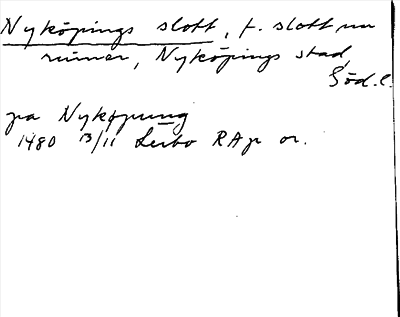 Nyköpings slott, f. slott nu
ruiner, Nyköpings stad,
Söd. l.
pa Nykøpung
1480 13/11 Lerbo RAp or.